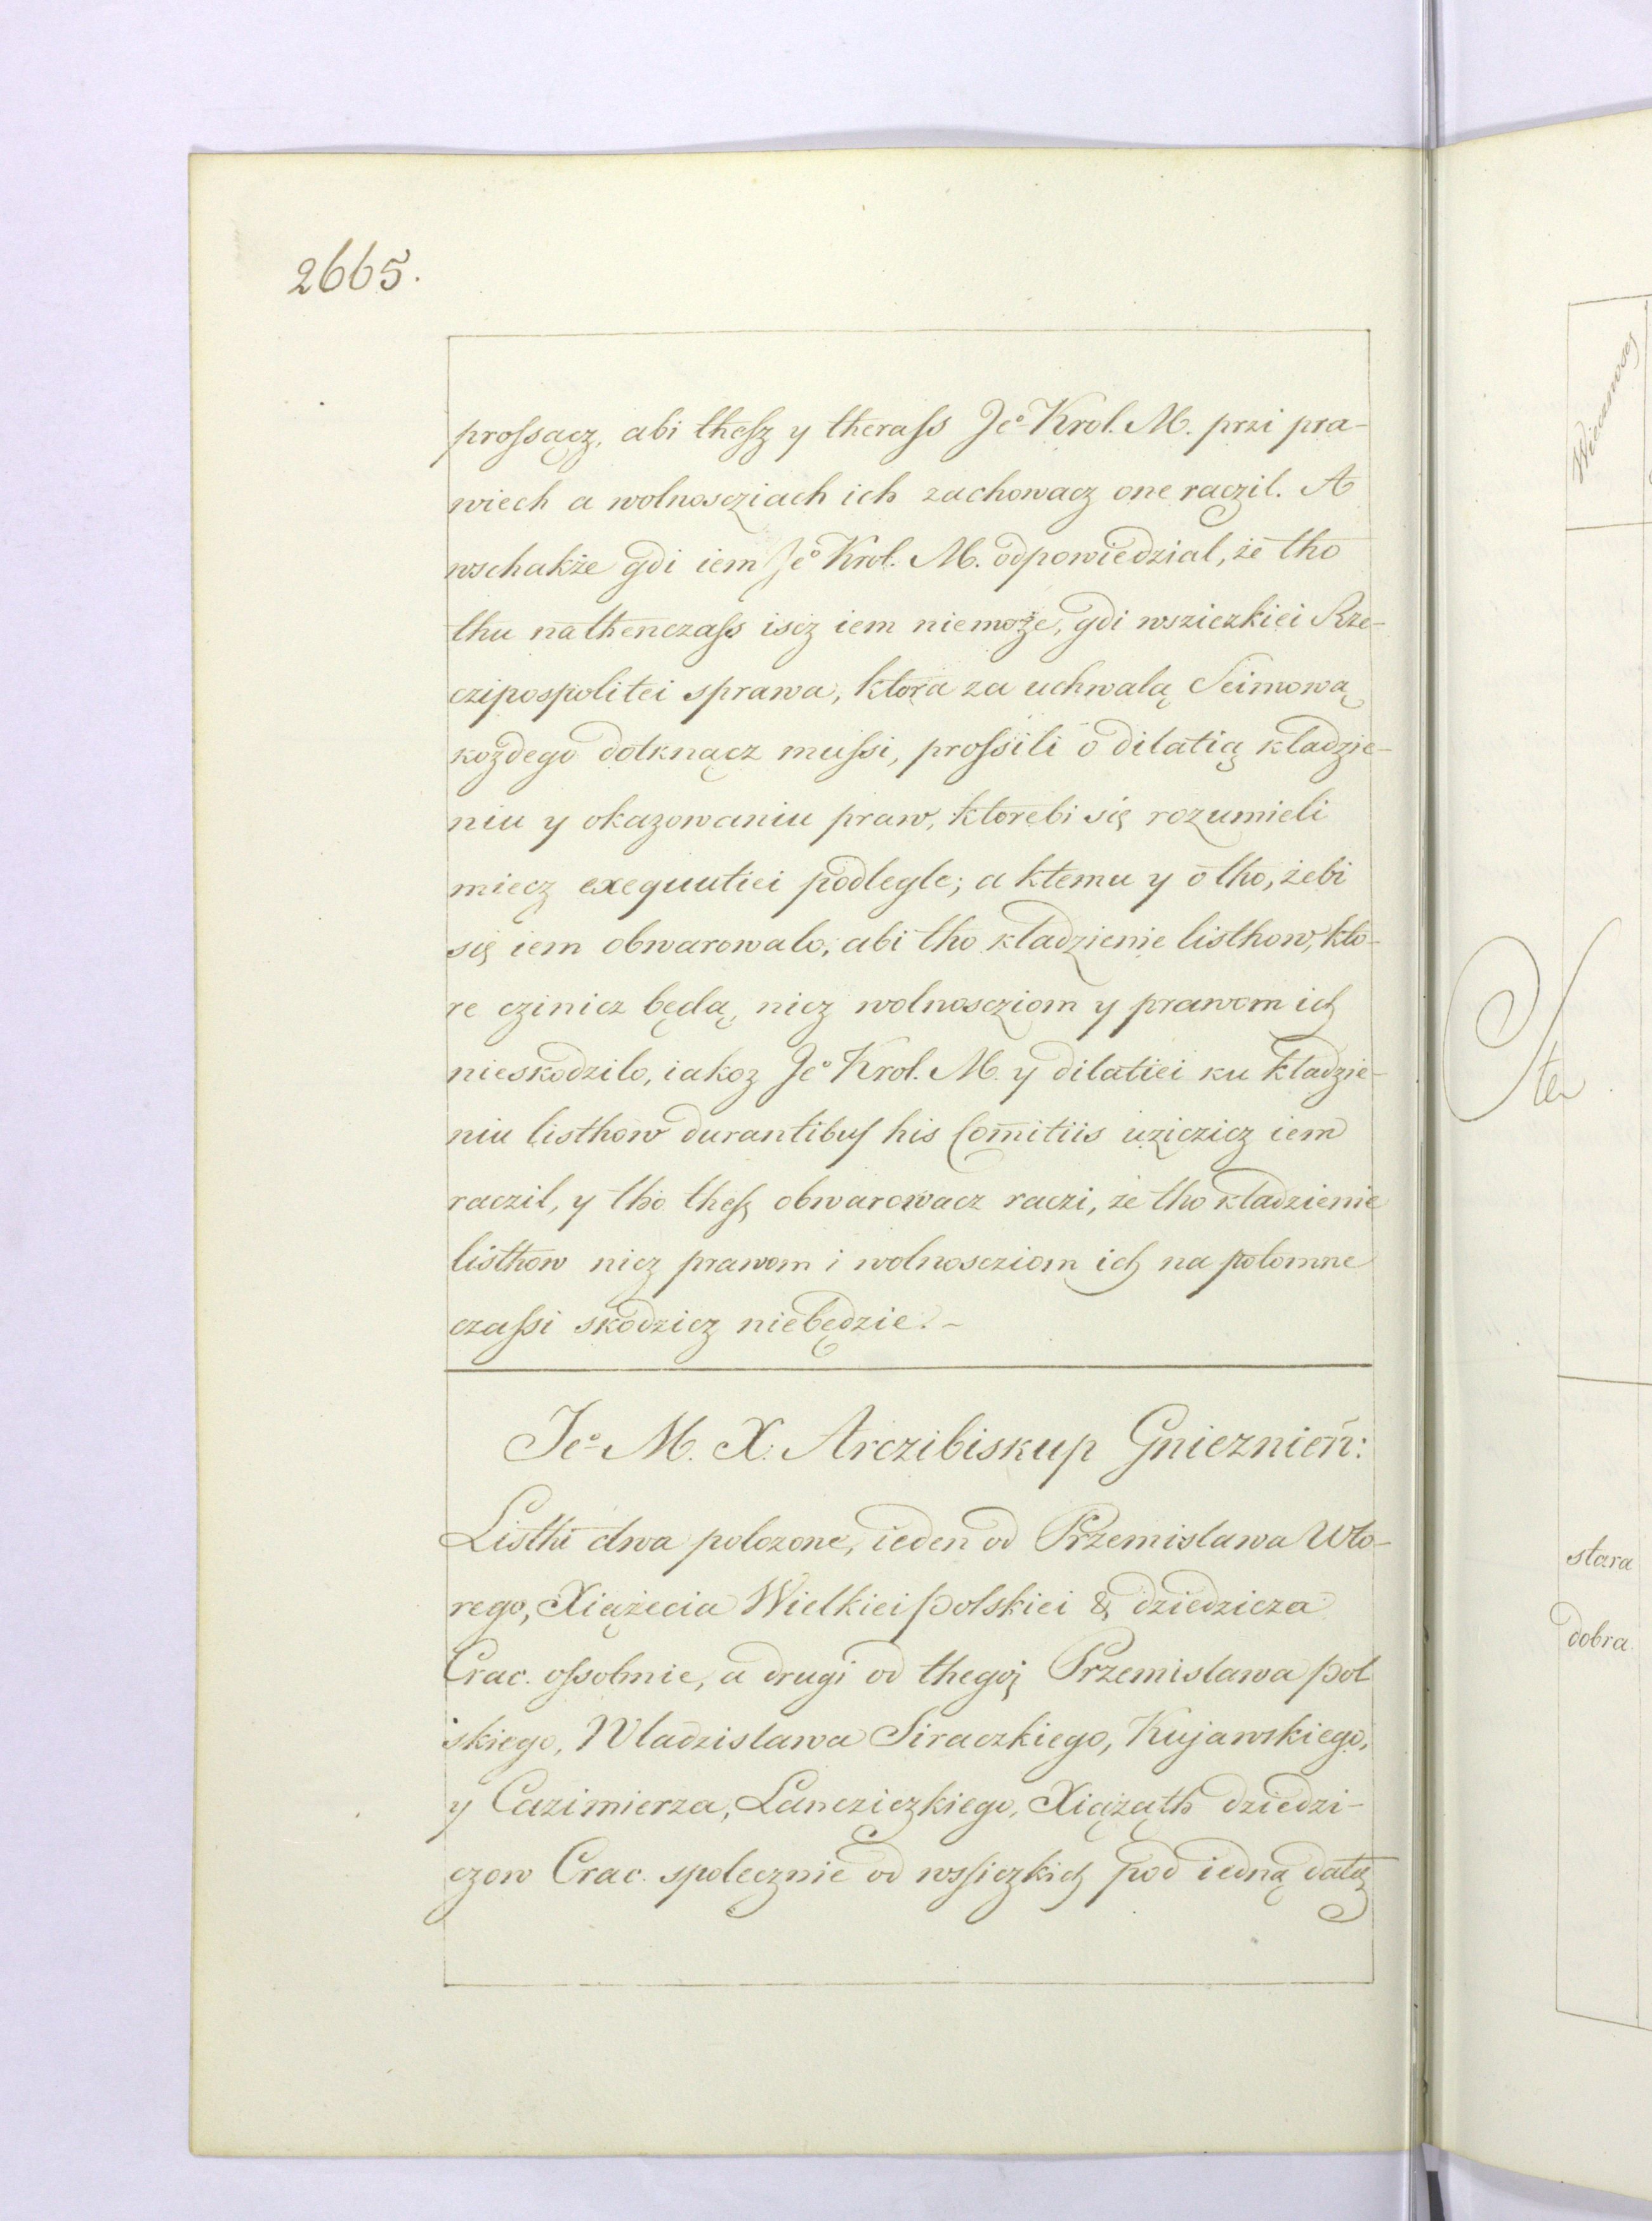 2665.
prossącz, abi thesz y therass Jeº Krol. M. przi pra-
wiech a wolnoscziach ich zachowacz one raczil. A
wschakże gdi iem Jeº Krol. M. odpowiedzial, że tho
thu nathenczass iscz iem niemoże, gdi wsziczkiei Rze-
czipospolitei sprawa, ktora za uchwalą Seimową
kozdego dotknącz mussi, prossili o dilatią kladzie-
niu y okazowaniu praw, ktorebi się rozumieli
miecz exequutiei podlegle; a ktemu y o tho, żebi
się iem obwarowalo, abi tho kladzienie listhow, kto-
re czinicz będą, nicz wolnoscziom y prawom ich
nieskodzilo, iakoz Jeº Krol. M. y dilatiei ku kladzie-
niu listhow durantibus his Comitiis uziczicz iem
raczil, y tho thesz obwarowacz raczi, że tho kladzienie
listhow nicz prawom i wolnoscziom ich na potomne
czassi skodzicz niebędzie.-
Jeº M. X. Arczibiskup Gnieznień:
Listhi dwa polozone, ieden od Przemislawa Wto-
rego, Xiążecia Wielkiei polskiei & dziedzicza
Crac. ossobnie, a drugi od thegoż Przemislawa pol
skiego, Wladzislawa Siraczkiego, Kujawskiego,
y Cazimierza, Lancziczkiego, Xiążąth dziedzi-
czow Crac. spolecznie od wssiczkich pod iedną datą
stara
dobra